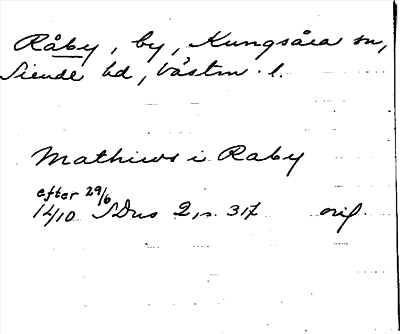 Råby, by, Kungsåra sn,
Siende hd, Västm. l.
Mathiws i Raby
efter 29/6
1410 SDns 2, s. 317 orig.